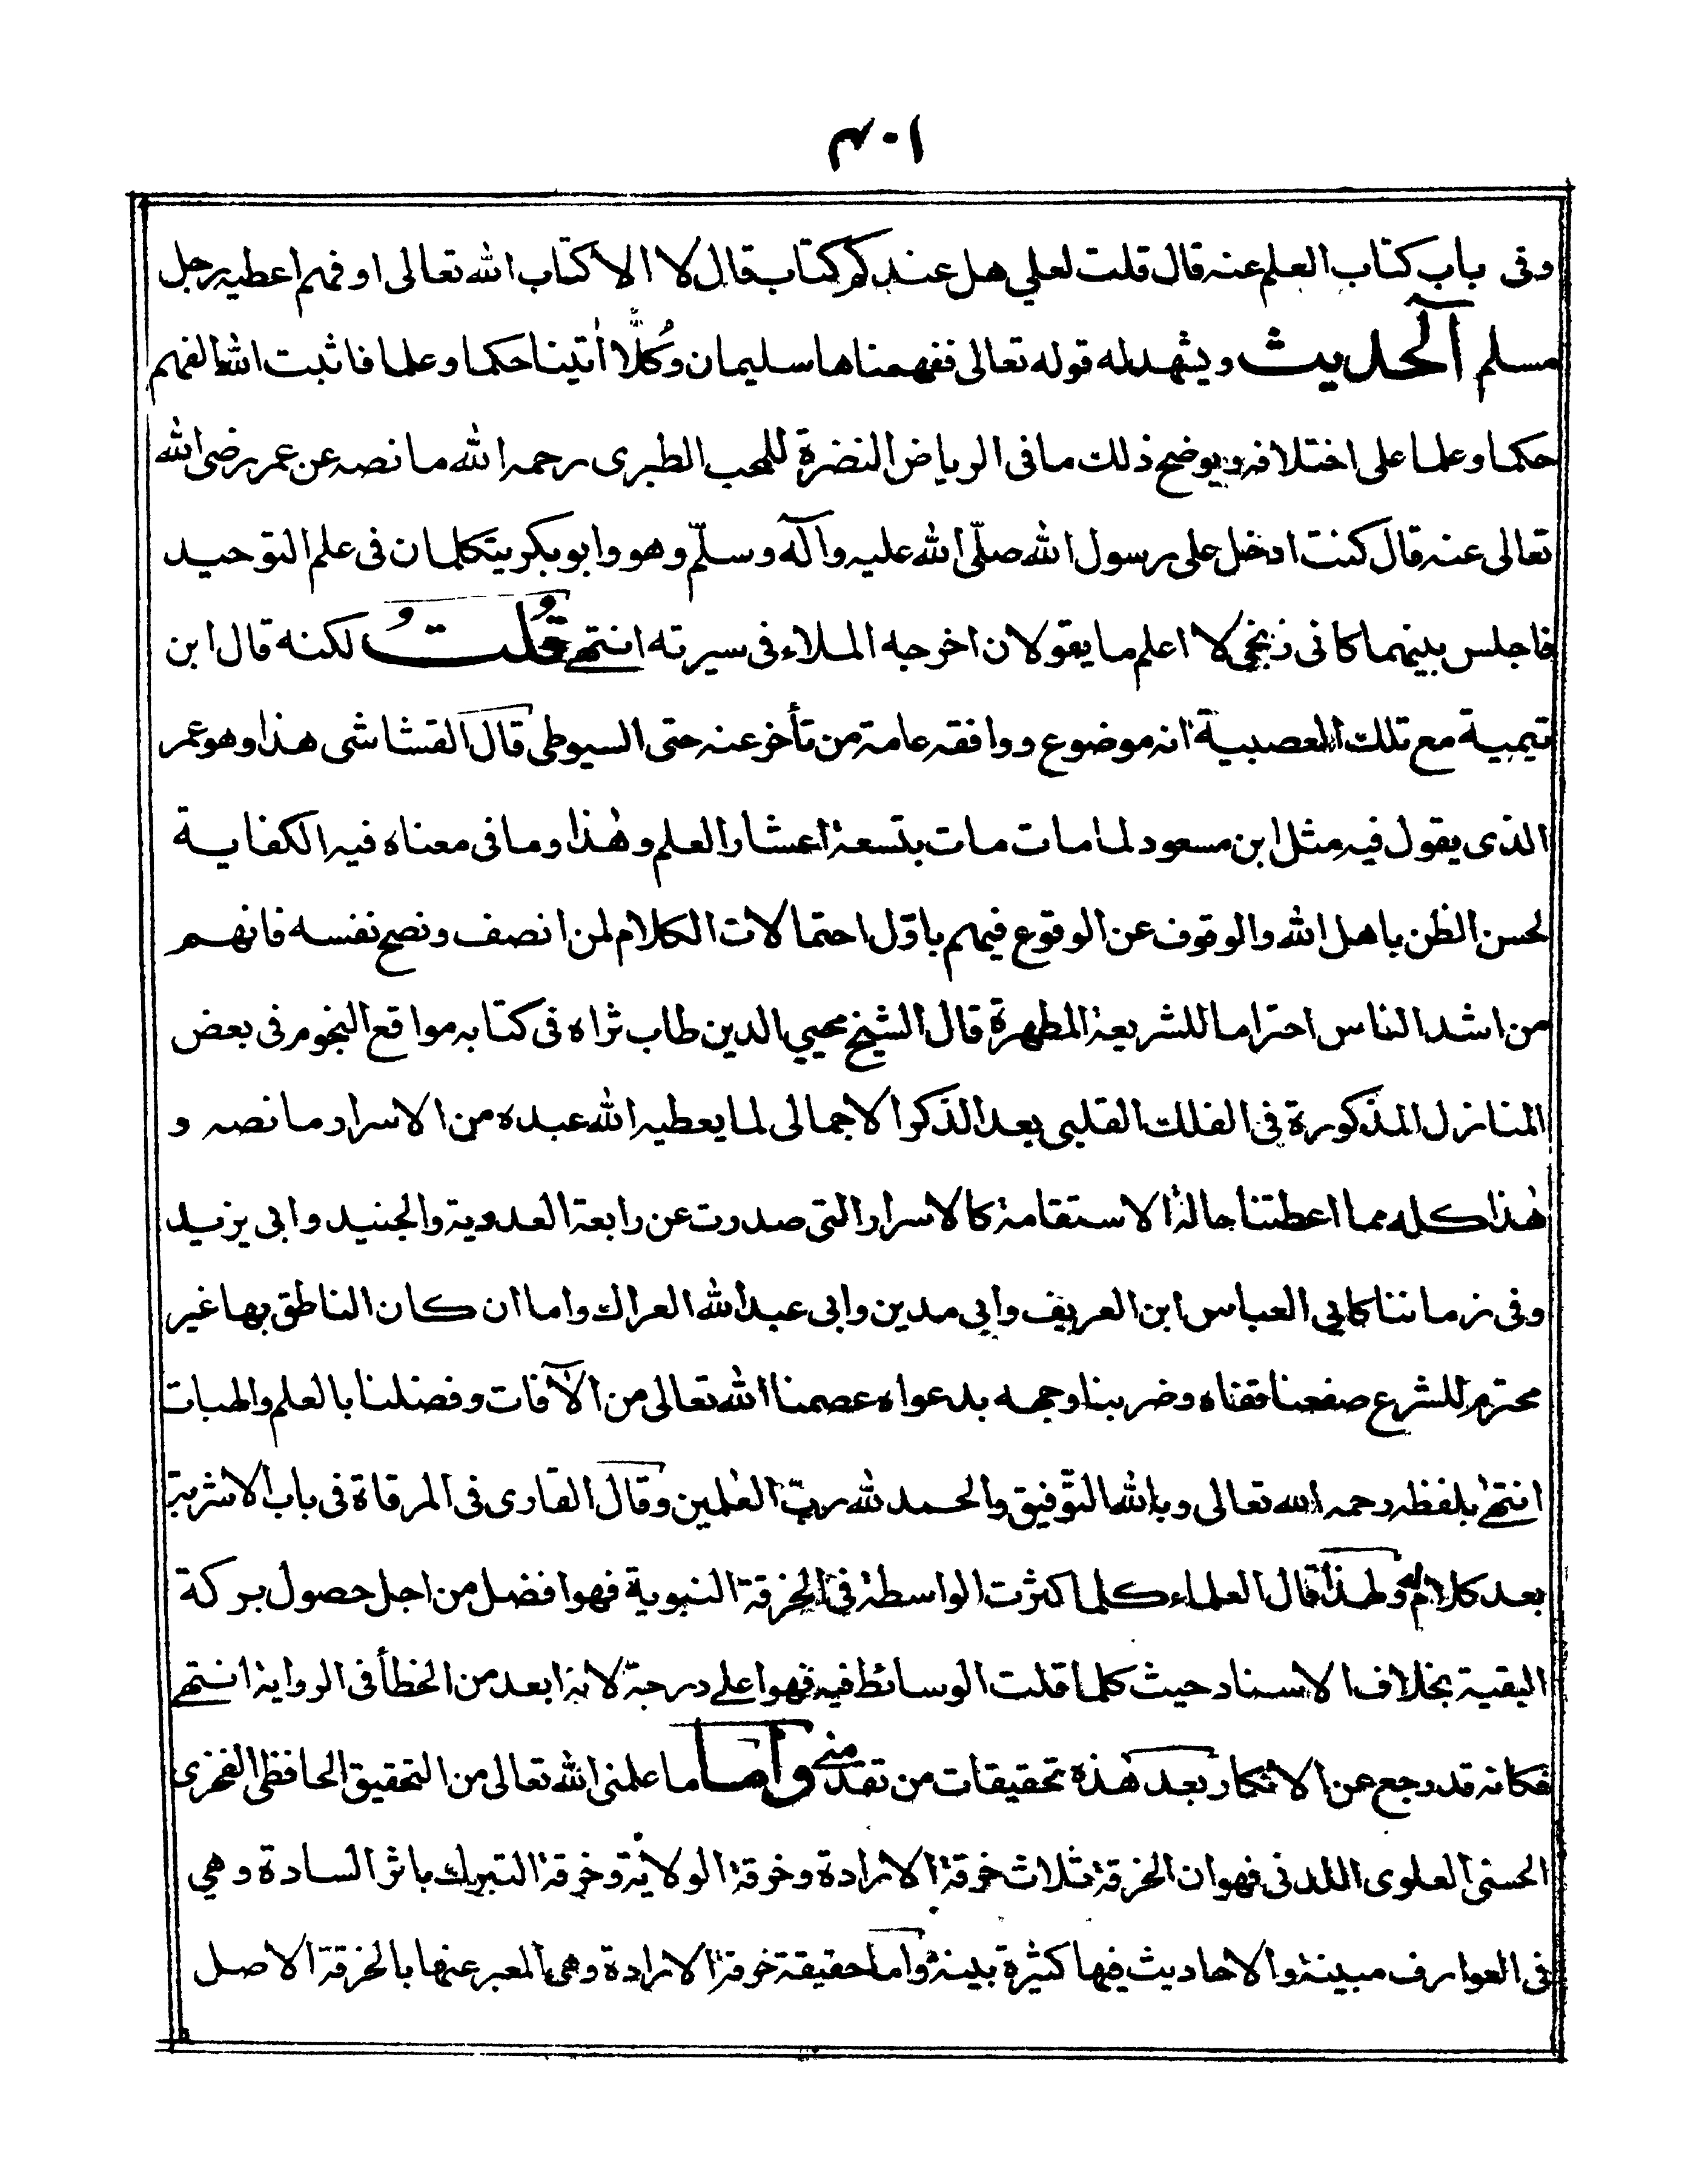 ١٠٣
وفى باب كتاب العلم عنه قال قلت لعلي هل عندكم كتاب قال لا الا كتاب الله تعالى او فهم اعطيه رجل
مسلم آلحديث ويشهد له قوله تعالى ففهمناها سليمان وكُلًّا اٰتينا حكما وعلما فاثبت الله الفهم
حكما وعلما على اختلافه ويوضح ذلك ما فى الرياض النضرة للمحب الطبرى رحمه الله ما نصه عن عمر رضى الله
تعالى عنه قال كنت ادخل على رسول الله صلّى الله عليه وآله وسلّم وهو وابو بكر يتكلمان فى علم التوحيد
فاجلس بينهما كانى زنجي لا اعلم ما يقولان اخرجه الملاء فى سيرته انتهى قُلتُ لكنه قال ابن
تيمية مع تلك العصبية انه موضوع ووافقه عامة من تأخر عنه حتى السيوطى قال القشاشى هذا وهو عمر
الذى يقول فيه مثل ابن مسعود لما مات مات بتسعة اعشار العلم وهٰذا وما فى معناه فيه الكفاية
لحسن الظن باهل الله والوقوف عن الوقوع فيهم باوّل احتمالات الكلام لمن انصف ونصح نفسه فانهم
من اشد الناس احتراما للشريعة المطهرة قال الشيخ محيي الدين طاب ثراه فى كتابه مواقع النجوم فى بعض
المنازل المذكورة فى الفلك القلبى بعد الذكر الاجمالى لما يعطيه الله عبده من الاسرار ما نصه و
هٰذا كله مما اعطتنا حالة الاستقامة كالاسرار التى صدرت عن رابعة العدوية والجنيد وابى يزيد
وفى زماننا كابي العباس ابن العريف وابي مدين وابى عبد الله العراك واما ان كان الناطق بها غير
محترم للشرع صفعنا قفناه وضربنا وجهه بدعواه عصمنا الله تعالى من الآفات وفضلنا بالعلم والهبات
انتهىٰ بلفظه رحمه الله تعالى وبالله التّوفيق والحمد لله ربّ العٰلمين وقال القارى فى المرقاة فى باب الاشربة
بعد كلام له ولهذا قال العلماء كلما كثرت الواسطة فى الخرقة النبوية فهو افضل من اجل حصول بركة
البقية بخلاف الاسناد حيث كلما قلت الوسائط فيه فهو اعلى درجة لانه ابعد من الخطأ فى الرواية انتهى
فكانه قد رجع عن الانكار بعد هٰذه تحقيقات من تقدمنى واما ما علمنى الله تعالى من التحقيق الحافظى الفخرى
الحسنى العلوى اللدنى فهو ان الخرقة ثلاث خرقة الارادة وخرقة الولاية وخرقة التبرك باثر السادة وهي
فى العوارف مبينة والاحاديث فيها كثيرة بينة واما حقيقة خرقة الارادة وهى المعبر عنها بالخرقة الاصل